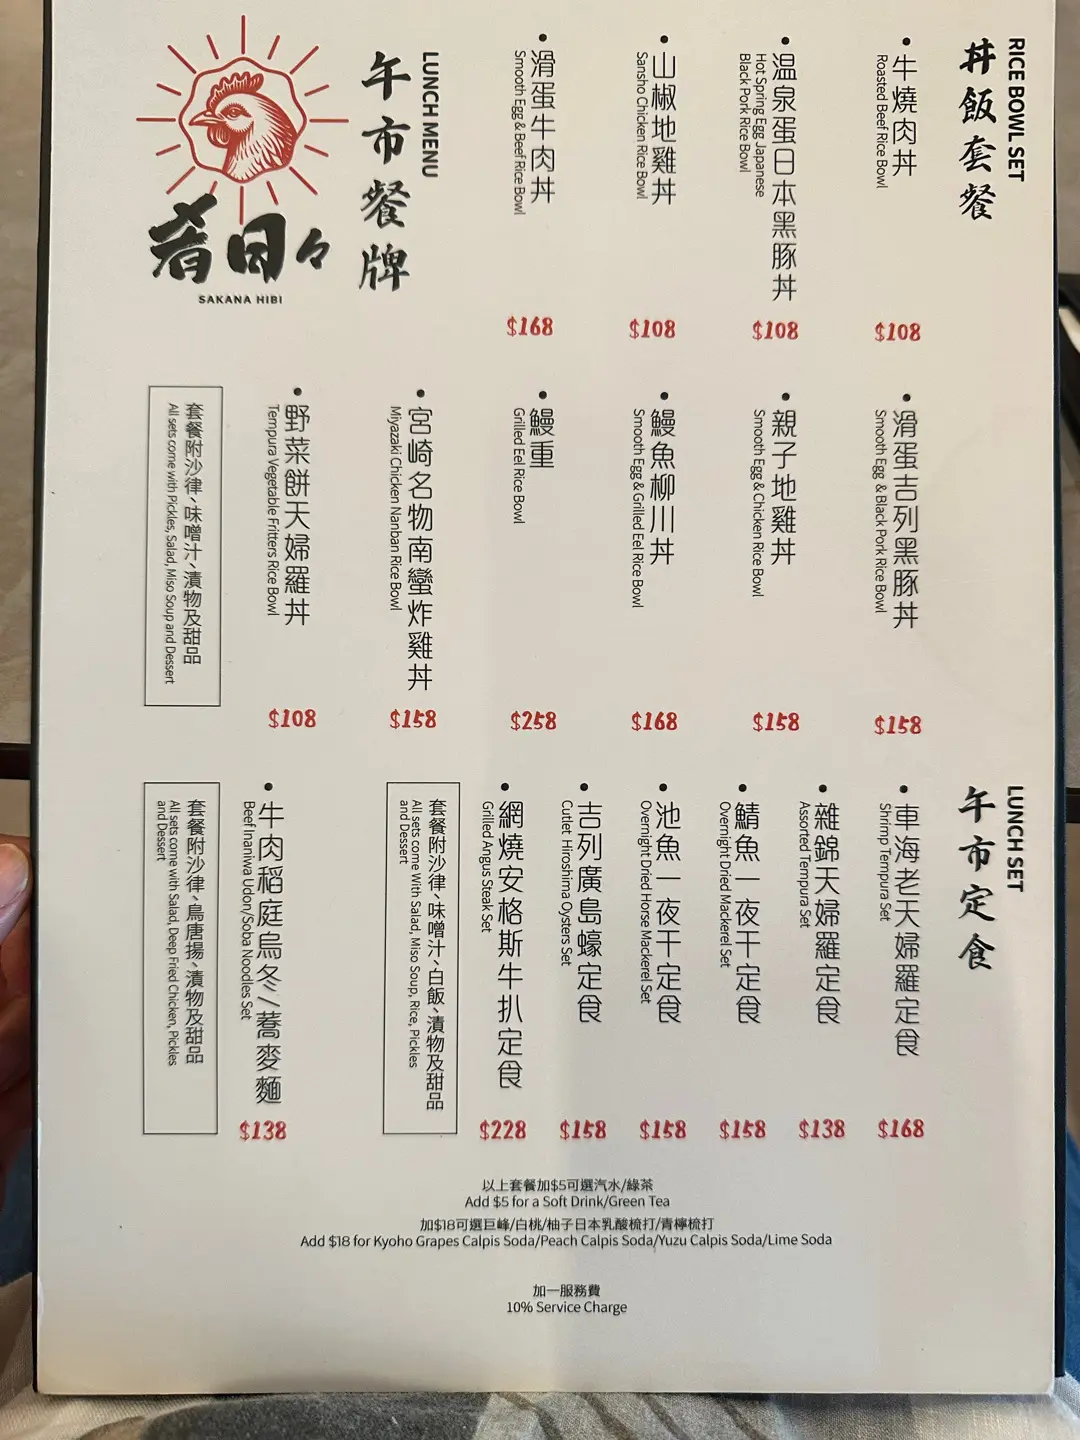 肴日々
SAKANA HIBI
LUNCH MENU
午市餐牌
RICE BOWL SET
丼飯套餐
牛燒肉丼
Roasted Beef Rice Bowl
$108
溫泉蛋日本黑豚丼
Hot Spring Egg Japanese
Black Pork Rice Bowl
$108
山椒地雞丼
Sansho Chicken Rice Bowl
$108
滑蛋牛肉丼
Smooth Egg & Beef Rice Bowl
$168
滑蛋吉列黑豚丼
Smooth Egg & Black Pork Rice Bowl
$158
親子地雞丼
Smooth Egg & Chicken Rice Bowl
$158
鰻魚柳川丼
Smooth Egg & Grilled Eel Rice Bowl
$168
鰻重
Grilled Eel Rice Bowl
$258
宮崎名物南蠻炸雞丼
Miyazaki Chicken Nanban Rice Bowl
$158
野菜餅天婦羅丼
Tempura Vegetable Fritters Rice Bowl
$108
套餐附沙律、味噌汁、漬物及甜品
All sets come with Pickles, Salad, Miso Soup and Dessert
LUNCH SET
午市定食
車海老天婦羅定食
Shrimp Tempura Set
$168
雜錦天婦羅定食
Assorted Tempura Set
$138
鯖魚一夜干定食
Overnight Dried Mackerel Set
$158
池魚一夜干定食
Overnight Dried Horse Mackerel Set
$158
吉列廣島蠔定食
Cutlet Hiroshima Oysters Set
$158
網燒安格斯牛扒定食
Grilled Angus Steak Set
$228
套餐附沙律、味噌汁、白飯、漬物及甜品
All sets come With Salad, Miso Soup, Rice, Pickles
and Dessert
牛肉稻庭烏冬/蕎麥麵
Beef Inaniwa Udon/Soba Noodles Set
$138
套餐附沙律、鳥唐揚、漬物及甜品
All sets come with Salad, Deep Fried Chicken, Pickles
and Dessert
以上套餐加$5可選汽水/綠茶
Add $5 for a Soft Drink/Green Tea
加$18可選巨峰/白桃/柚子日本乳酸梳打/青檸梳打
Add $18 for Kyoho Grapes Calpis Soda/Peach Calpis Soda/Yuzu Calpis Soda/Lime Soda
加一服務費
10% Service Charge